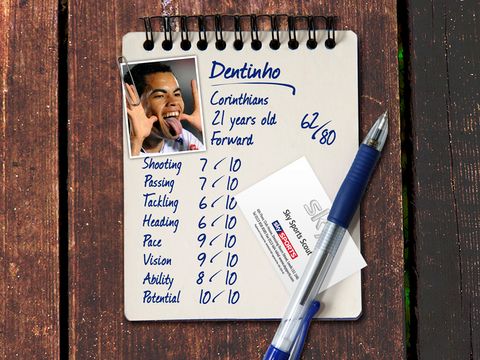 Dentinho
Corinthians
21 years old
Forward
62/80
Shooting 7/10
Passing 7/10
Tackling 6/10
Heading 6/10
Pace 9/10
Vision 9/10
Ability 8/10
Potential 10/10
sky
Sky Sports Scout
sky SPORTS